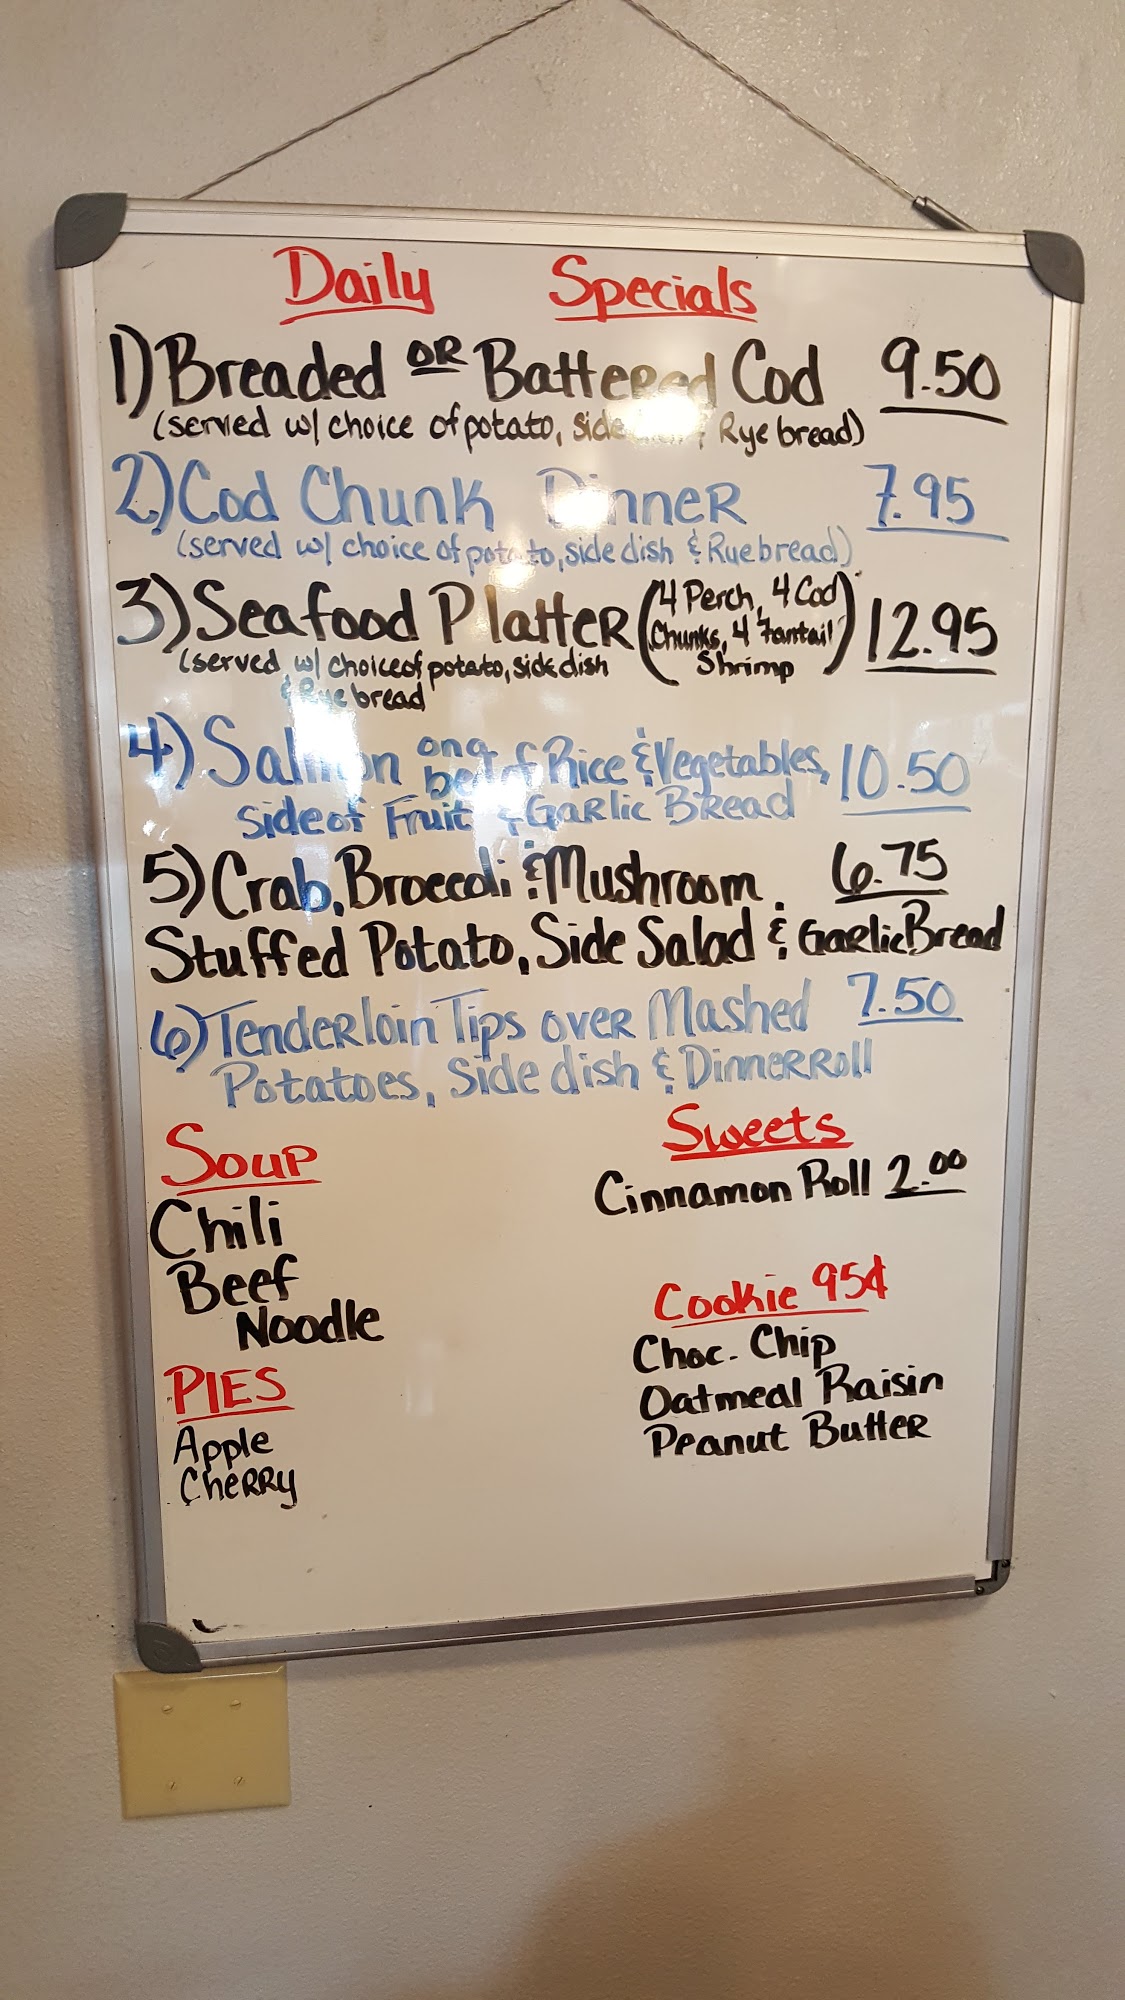 Daily Specials
1) Breaded OR Battered Cod 9.50
(served w/ choice of potato, side dish & Rye bread)
2) Cod Chunk Dinner 7.95
(served w/ choice of potato, side dish & Rye bread)
3) Seafood Platter (4 Perch, 4 Cod
Chunks, 4 Fantail
Shrimp) 12.95
(served w/ choice of potato, side dish
& Rye bread)
4) Salmon on a bed of Rice & Vegetables, 10.50
side of Fruit & Garlic Bread
5) Crab, Broccoli & Mushroom 6.75
Stuffed Potato, Side Salad & Garlic Bread
6) Tenderloin Tips over Mashed 7.50
Potatoes, Side dish & Dinner Roll
Soup
Chili
Beef
Noodle
PIES
Apple
Cherry
Sweets
Cinnamon Roll 2.00
Cookie 95¢
Choc. Chip
Oatmeal Raisin
Peanut Butter